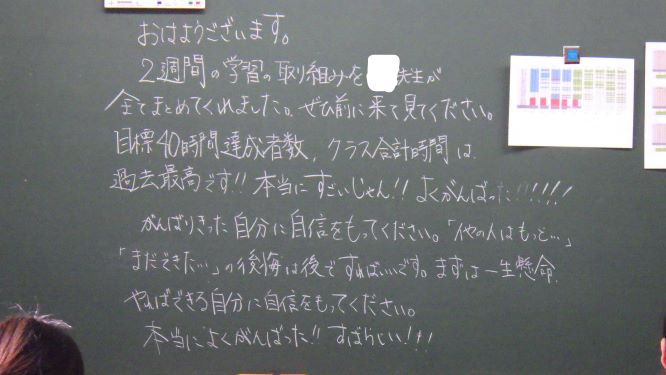 おはようございます。
2週間の学習の取り組みを 先生が
全てまとめてくれました。ぜひ前に来て見てください。
目標40時間達成者数、クラス合計時間は
過去最高です!! 本当にすごいじゃん!! よくがんばった!!!!!!
がんばりきった自分に自信をもってください。「他の人はもっと…」
「まだできた…」の後悔は後ですればいいです。まずは一生懸命
やればできる自分に自信をもってください。
本当によくがんばった!! すばらしい!!!